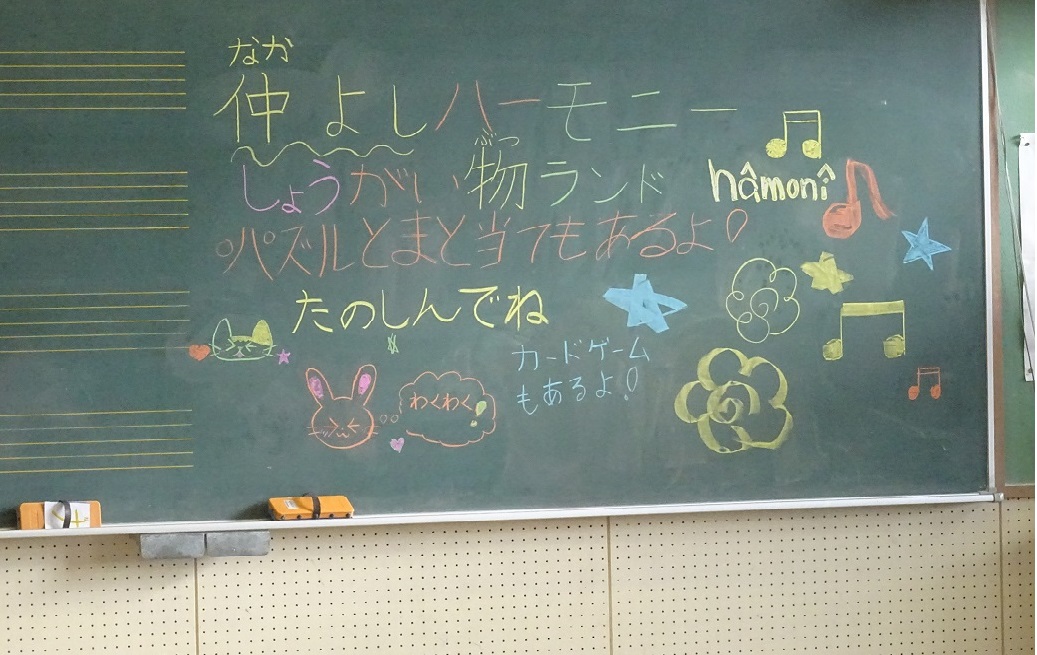 なか
仲よしハーモニー
ぶつ
しょうがい物ランド
hâmonî
パズルとまと当てもあるよ!
たのしんでね
カードゲーム
もあるよ!
わくわく!